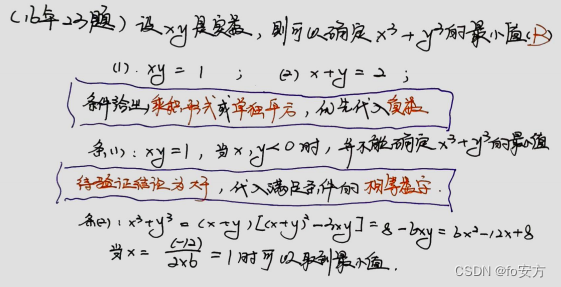 (16年23题) 设xy是实数, 则可以确定x³+y³的最小值(B)
(1). xy=1 ; (2) x+y=2 ;
条件给出乘积形式或单独平方, 优先代入负数
条(1): xy=1, 当x,y<0时, 并不能确定x³+y³的最小值
待验证结论为大于, 代入满足条件的相等数字.
条(2): x³+y³=(x+y)[(x+y)²-3xy]=8-6xy=6x²-12x+8
当x=-(-12)/2×6=1时可以取到最小值.
CSDN @fo安方